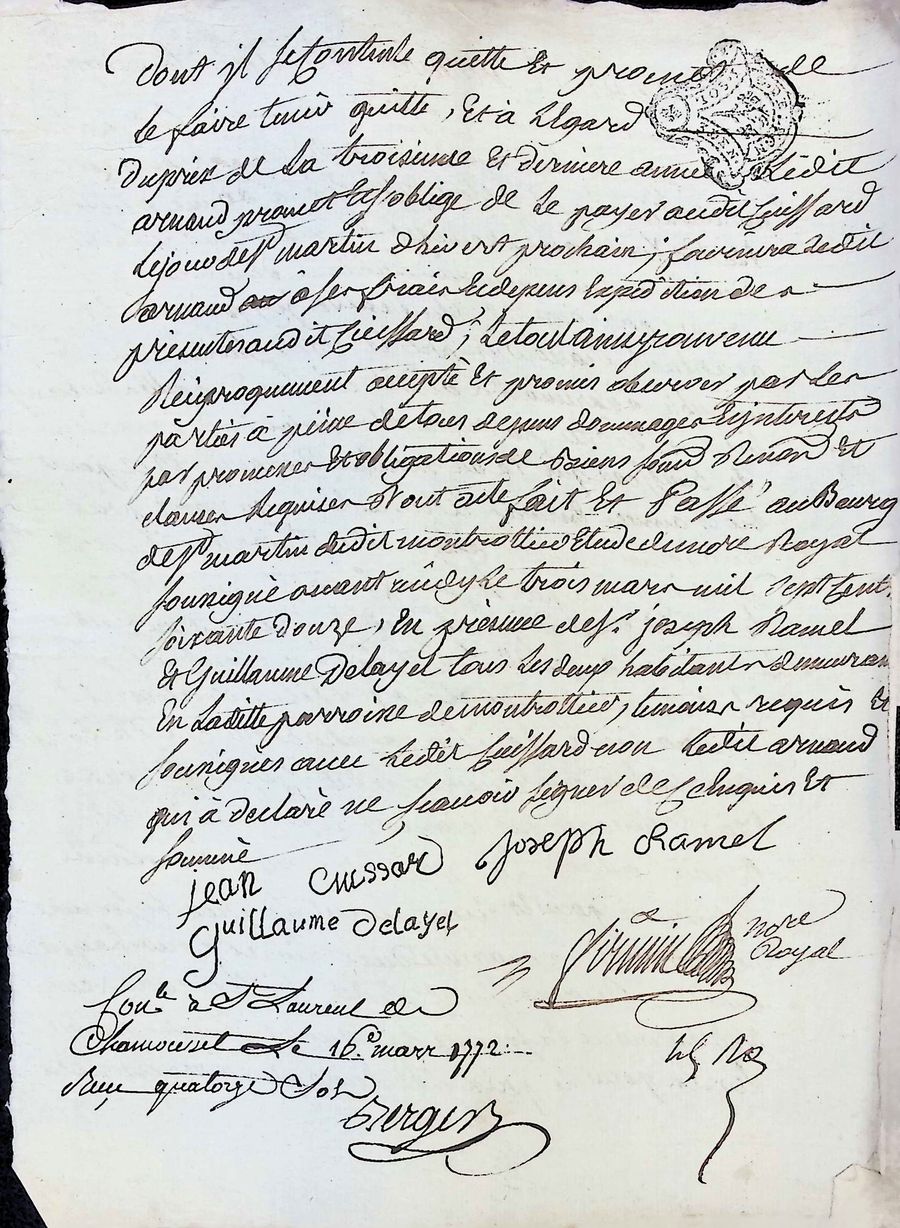 dont il se Contente quitte Et promet de
le faire tenir quitte, Et à L'Egard
du prix de La troisieme Et derniere année Ledit
arnaud promet Et s'oblige de Le payer audit Cuissard
le jour de St martin d'hivert prochain; fournira Ledit
arnaud à ses fraix Et depens Expédition des
presentes audit Cuissard; Le tout ainsy convenu
Reciproquement accepté Et promis observer par Les
parties à peine de tous depens dommages Et interests
par promesses Et obligations de biens soumō Renonō Et
clauses Requises Dont acte fait Et Passé au Bourg
de St martin dudit montrottier Etude du nore Royal
soussigné avant midy Le trois mars mil sept Cent
soixante douze, En présence de sr. joseph Ramel
Et Guillaume Delayel tous Les deux habitants demeurant
En Laditte parroisse de montrottier, temoins requis Et
soussignés avec Ledit Cuissard non Ledit arnaud
qui à declaré ne sçavoir signer de Ce Enquis Et
sommé
jean cuissard joseph Ramel
Guillaume Delayel
nore
Royal
Conlé à St Laurent de
Chamousset Le 16e. mars 1772.
Reçu quatorze sols
Berger